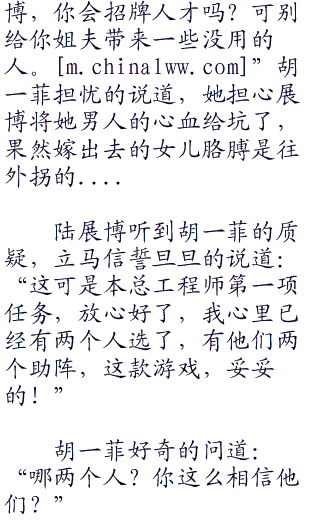 博，你会招牌人才吗？可别
给你姐夫带来一些没用的
人。[m.china1ww.com]”胡
一菲担忧的说道，她担心展
博将她男人的心血给坑了，
果然嫁出去的女儿胳膊是往
外拐的....
陆展博听到胡一菲的质
疑，立马信誓旦旦的说道：
“这可是本总工程师第一项
任务，放心好了，我心里已
经有两个人选了，有他们两
个助阵，这款游戏，妥妥
的！”
胡一菲好奇的问道：
“哪两个人？你这么相信他
们？”